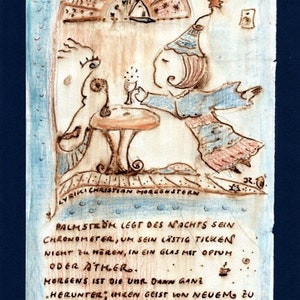 LYRIK: CHRISTIAN MORGENSTERN
PALMSTRÖM LEGT DES NACHTS SEIN
CHRONOMETER, UM SEIN LÄSTIG TICKEN
NICHT ZU HÖREN, IN EIN GLAS MIT OPIUM
ODER ÄTHER.
MORGENS IST DIE UHR DANN GANZ
„HERUNTER“; IHREN GEIST VON NEUEM ZU